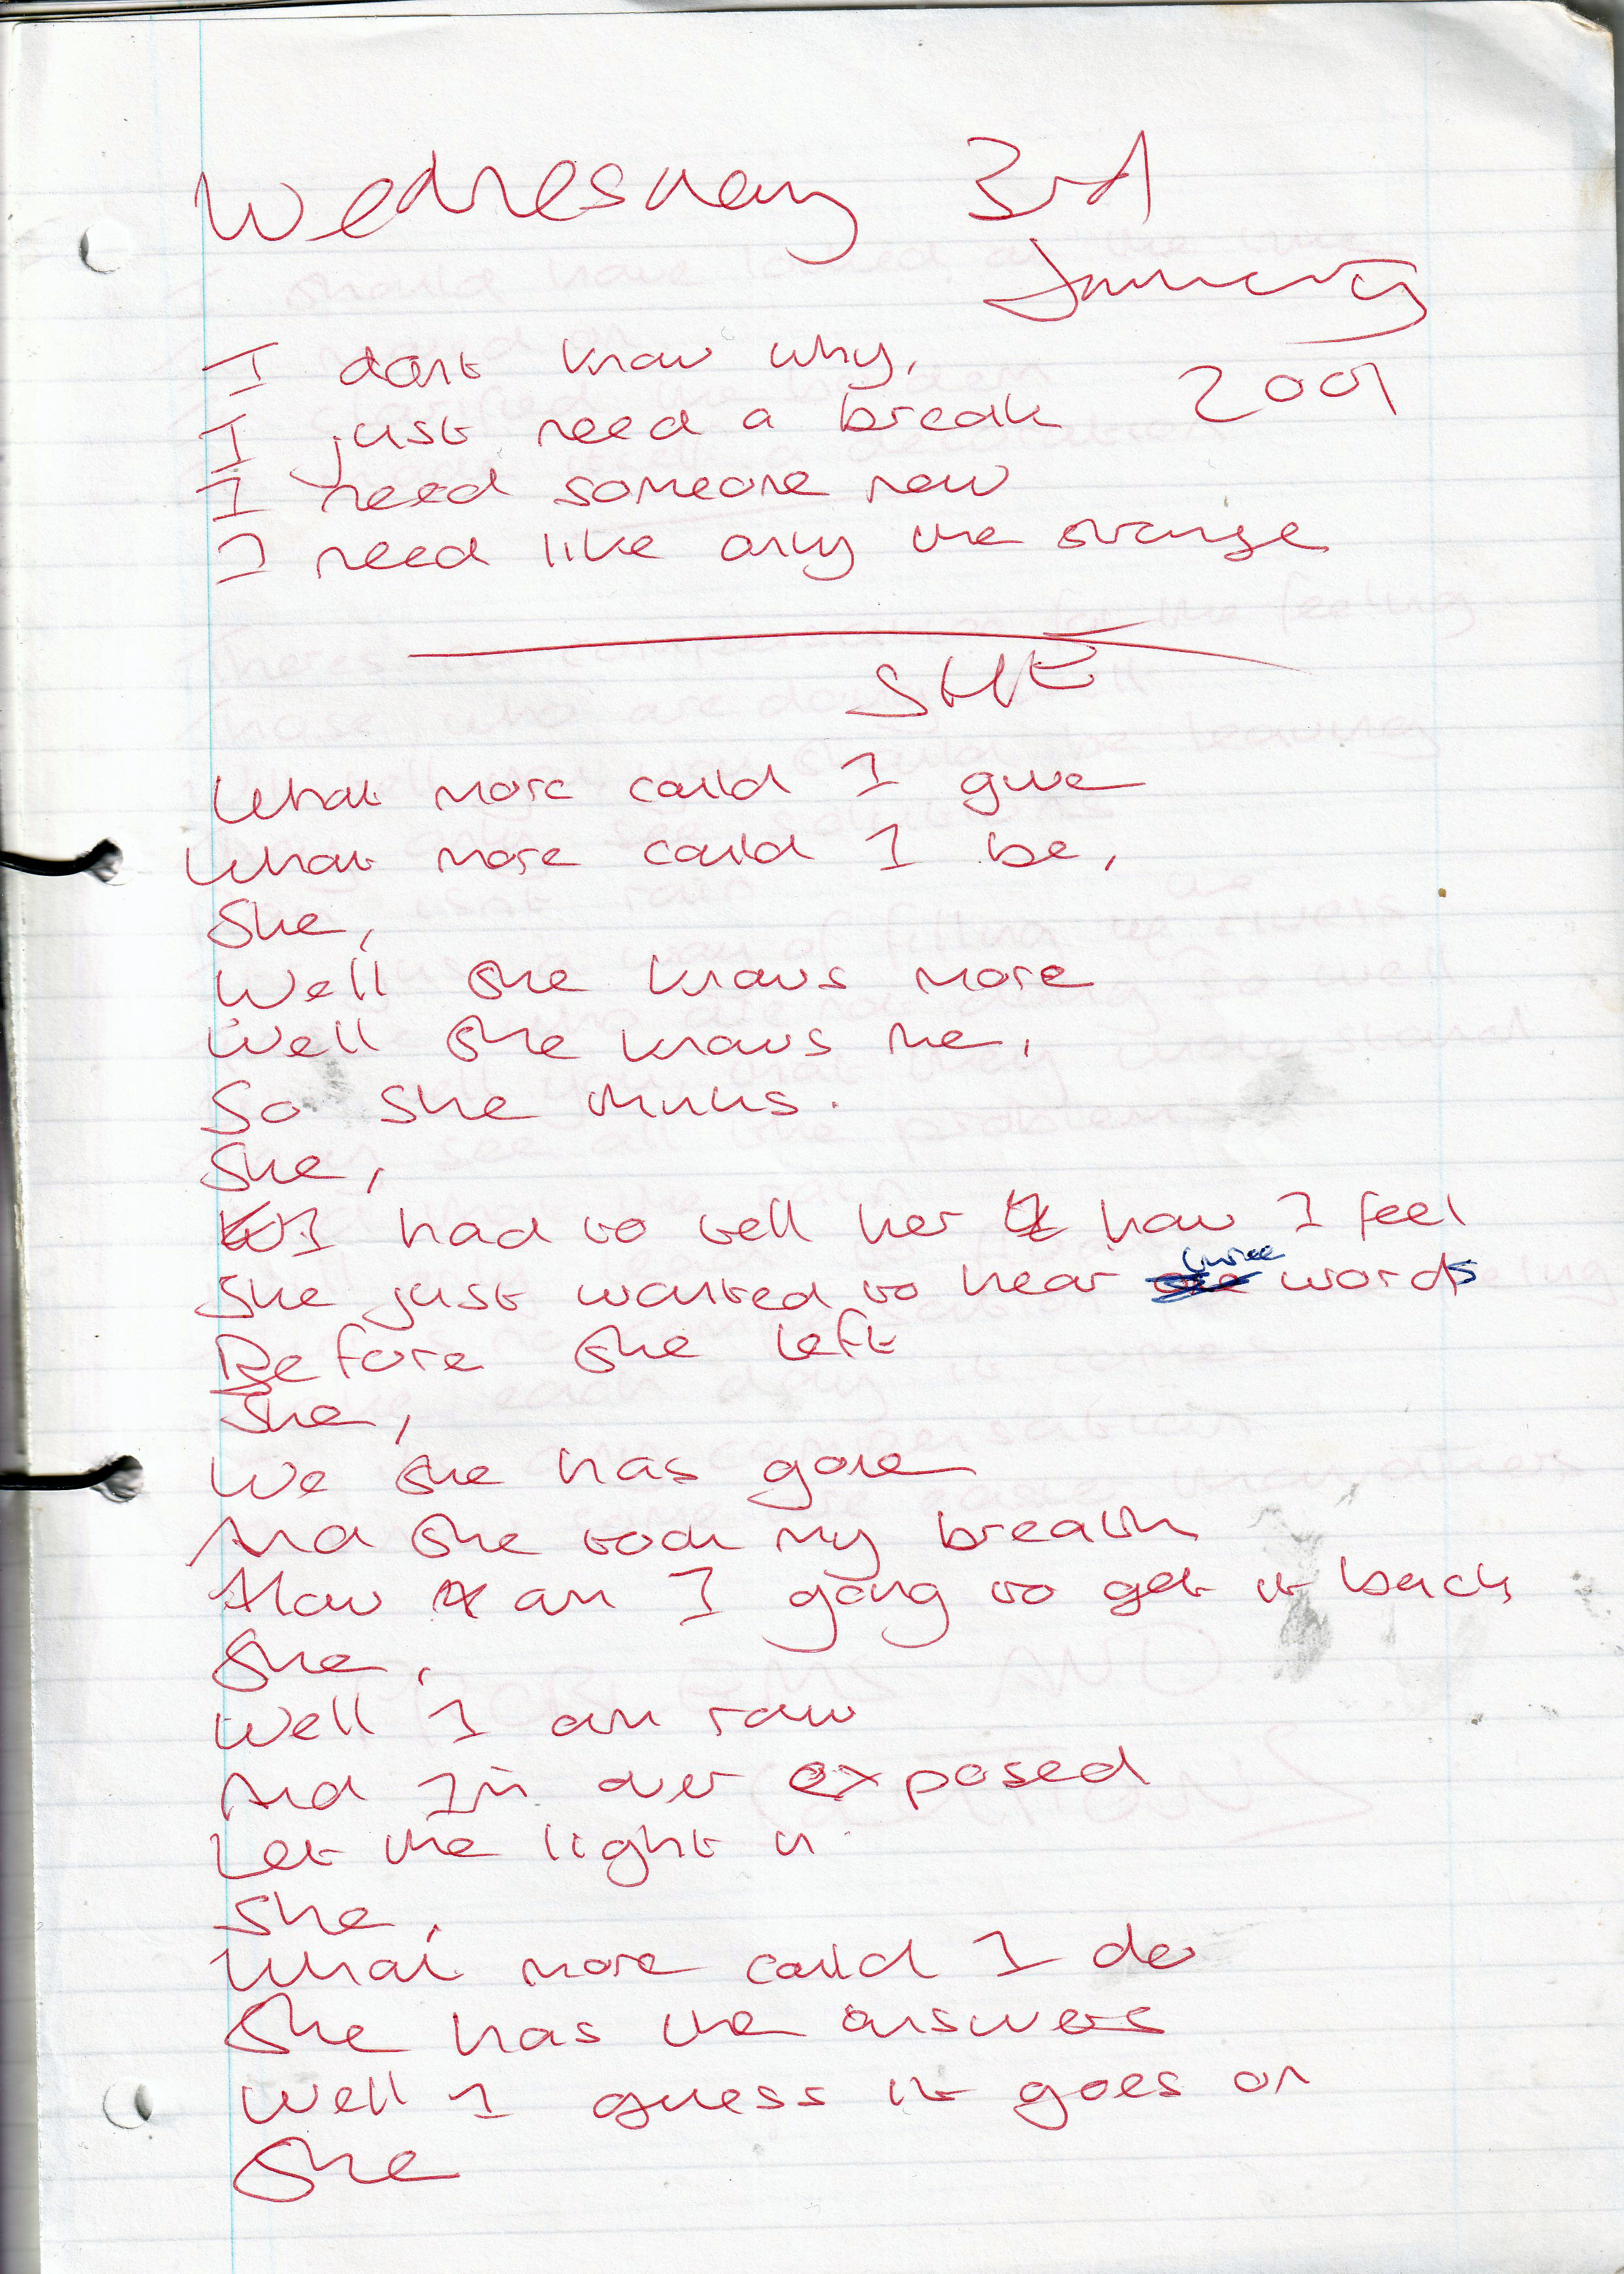 Wednesday 3rd
January
2001
I dont know why,
I just need a break
I need someone new
I need like only the strange
SHE
What more could I give
What more could I be,
She,
Well she knows more
Well she knows me,
So she thinks.
She,
I had to tell her how I feel
She just wanted to hear three words
Before she left
She,
We she has gone
And she took my breath
How am I going to get it back
She,
Well I am raw
And I'm over exposed
Let the light in
She,
What more could I do
She has the answers
Well I guess it goes on
She